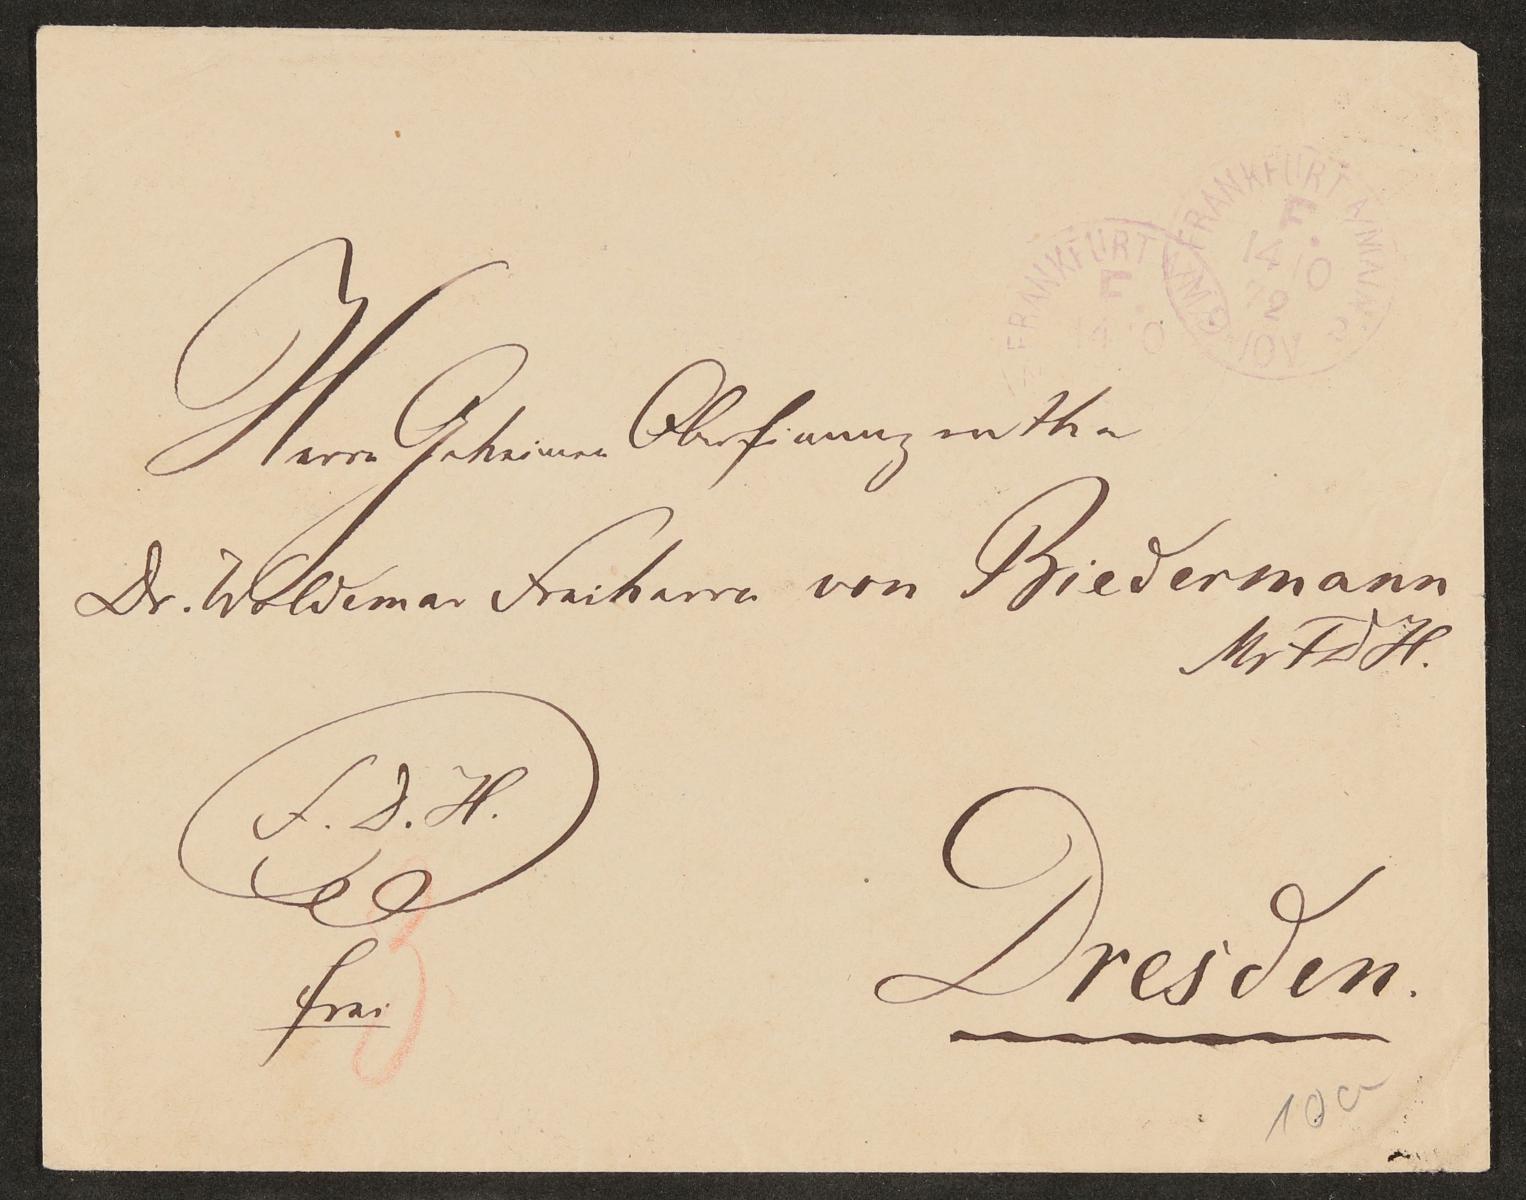 FRANKFURT A/MAIN.
F.
14 10
72
10V
FRANKFURT
F.
14 10
Herrn Geheimen Oberfinanzrathe
Dr. Woldemar Freiherrn von Biedermann
MrFDH.
F. D. H.
frei
3
Dresden.
10a